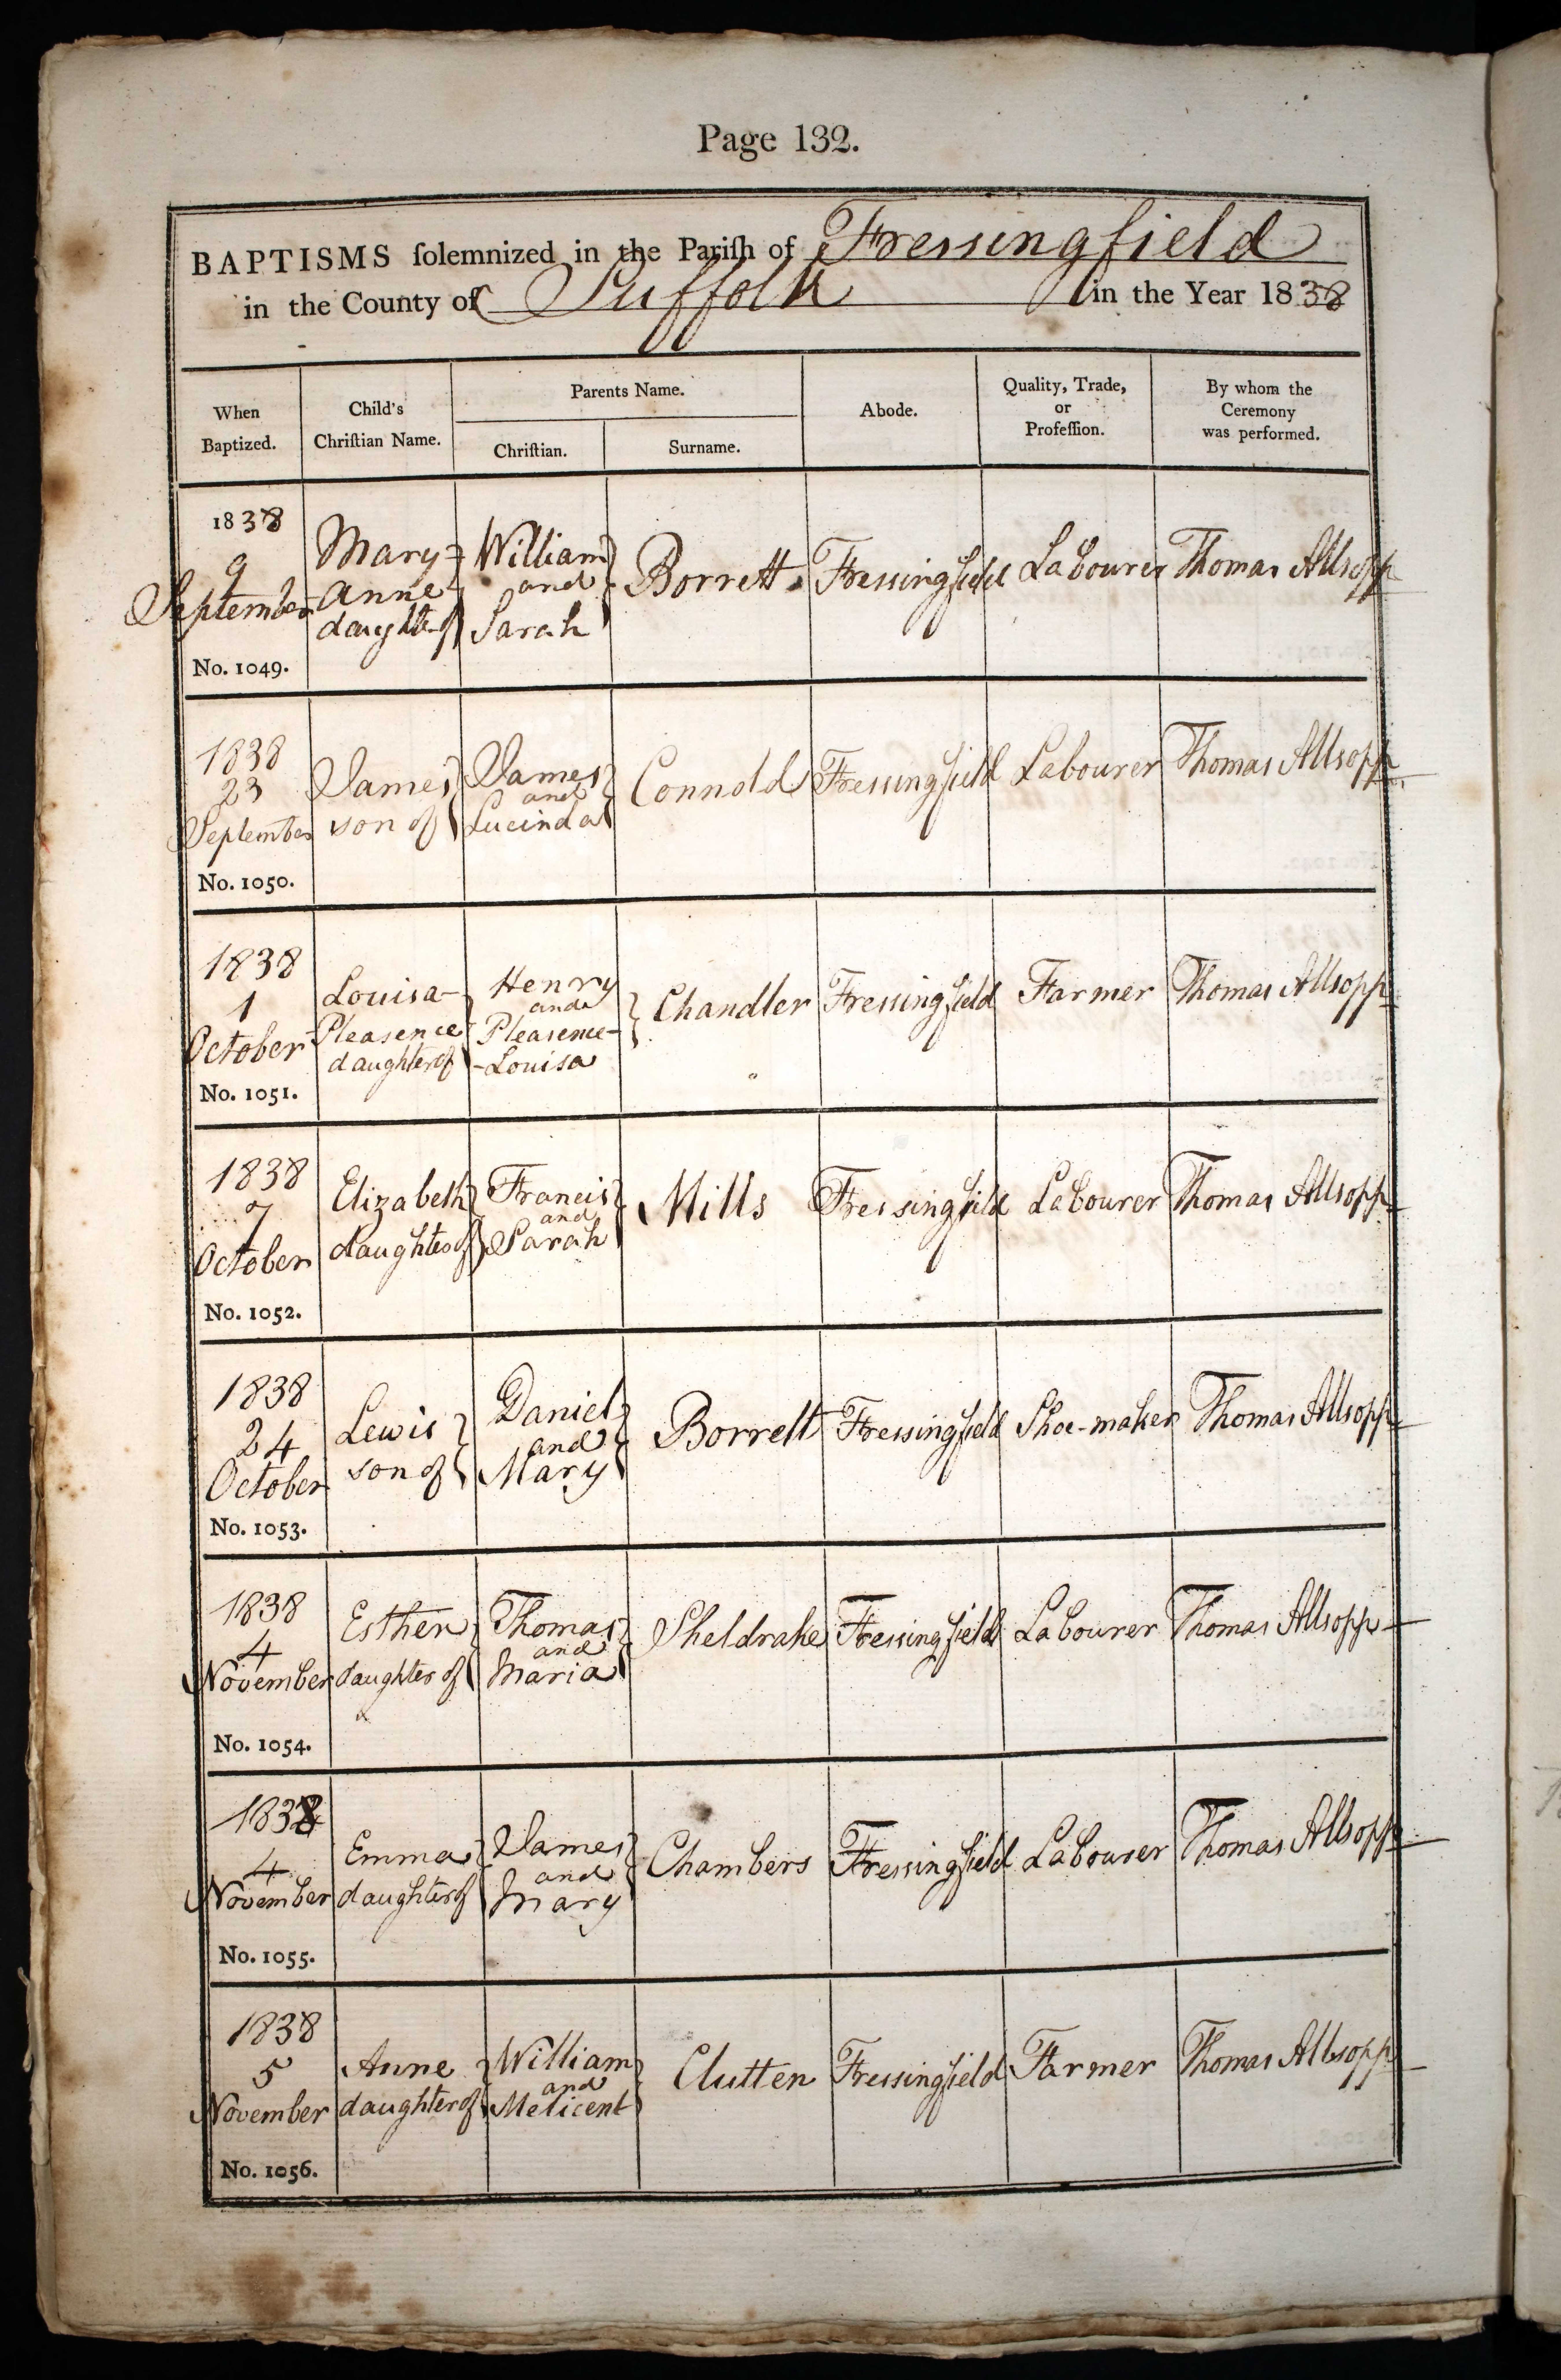 Page 132.
BAPTISMS ſolemnized in the Pariſh of Fressingfield
in the County of Suffolk in the Year 1838
When Baptized.
Child's Chriſtian Name.
Parents Name.
Chriſtian.
Surname.
Abode.
Quality, Trade, or Profeſſion.
By whom the Ceremony was performed.
1838
9
September
No. 1049.
Mary=
Anne
daughter of
William
and
Sarah
Borrett
Fressingfield
Labourer
Thomas Allsopp
1838
23
September
No. 1050.
James
son of
James
and
Lucinda
Connold
Fressingfield
Labourer
Thomas Allsopp
1838
1
October
No. 1051.
Louisa-
Pleasence
daughter of
Henry
and
Pleasence-
-Louisa
Chandler
Fressingfield
Farmer
Thomas Allsopp
1838
7
October
No. 1052.
Elizabeth
daughter of
Francis
and
Sarah
Mills
Fressingfield
Labourer
Thomas Allsopp
1838
24
October
No. 1053.
Lewis
son of
Daniel
and
Mary
Borrett
Fressingfield
Shoe-maker
Thomas Allsopp
1838
4
November
No. 1054.
Esther
daughter of
Thomas
and
Maria
Sheldrake
Fressingfield
Labourer
Thomas Allsopp
1838
4
November
No. 1055.
Emma
daughter of
James
and
Mary
Chambers
Fressingfield
Labourer
Thomas Allsopp
1838
5
November
No. 1056.
Anne
daughter of
William
and
Melicent
Clutten
Fressingfield
Farmer
Thomas Allsopp